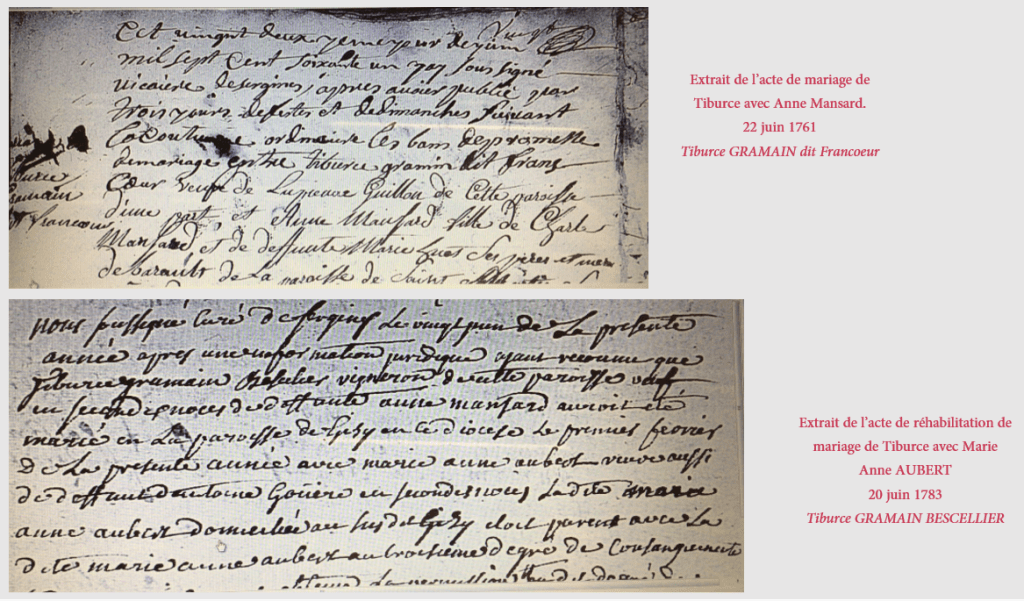 Cejourd'huy vingt deuxyeme jour de juin
mil sept Cent soixante un soussigné
vicaire desergines, apres avoir publié par
trois jours defestes et dedimanches suivant
La Coutume ordinaire les bans depromesse
demariage entre tiburce gramin dit franc
Cœur veuf de Guillon de Cette paroisse
d'une part, et Anne Mansard fille de Charle
Mansard et de deffunte Marie ses peres et mere
de la paroisse de Saint
francoeur
Extrait de l'acte de mariage de
Tiburce avec Anne Mansard.
22 juin 1761
Tiburce GRAMAIN dit Francoeur
nous soussigné curé de sergines le vingt juin de La presente
année apres une information juridique ayant reconnu que
tiburce gramain vigneron de cette paroisse veuf
en secondes noces de deffunte anne mansard auroit été
marié en La paroisse de Gisy en ce diocese Le premier fevrier
de La presente année avec marie anne aubert veuve aussi
de deffunt antoine en secondes noces Ladite marie
anne aubert domiciliée au susdit Gisy etoit parent avec La
dite marie anne aubert au troisieme degré de Consanguinité
La permission
Extrait de l'acte de réhabilitation de
mariage de Tiburce avec Marie
Anne AUBERT
20 juin 1783
Tiburce GRAMAIN BESCELLIER